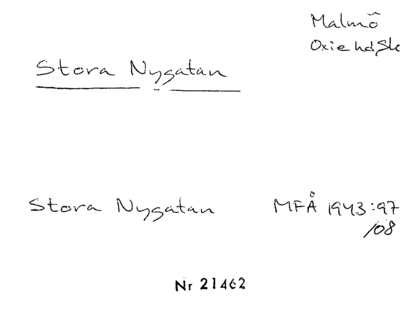 Malmö
Oxie hd, Sk
Stora Nygatan
Stora Nygatan MFÅ 1943:97
108
Nr 21462